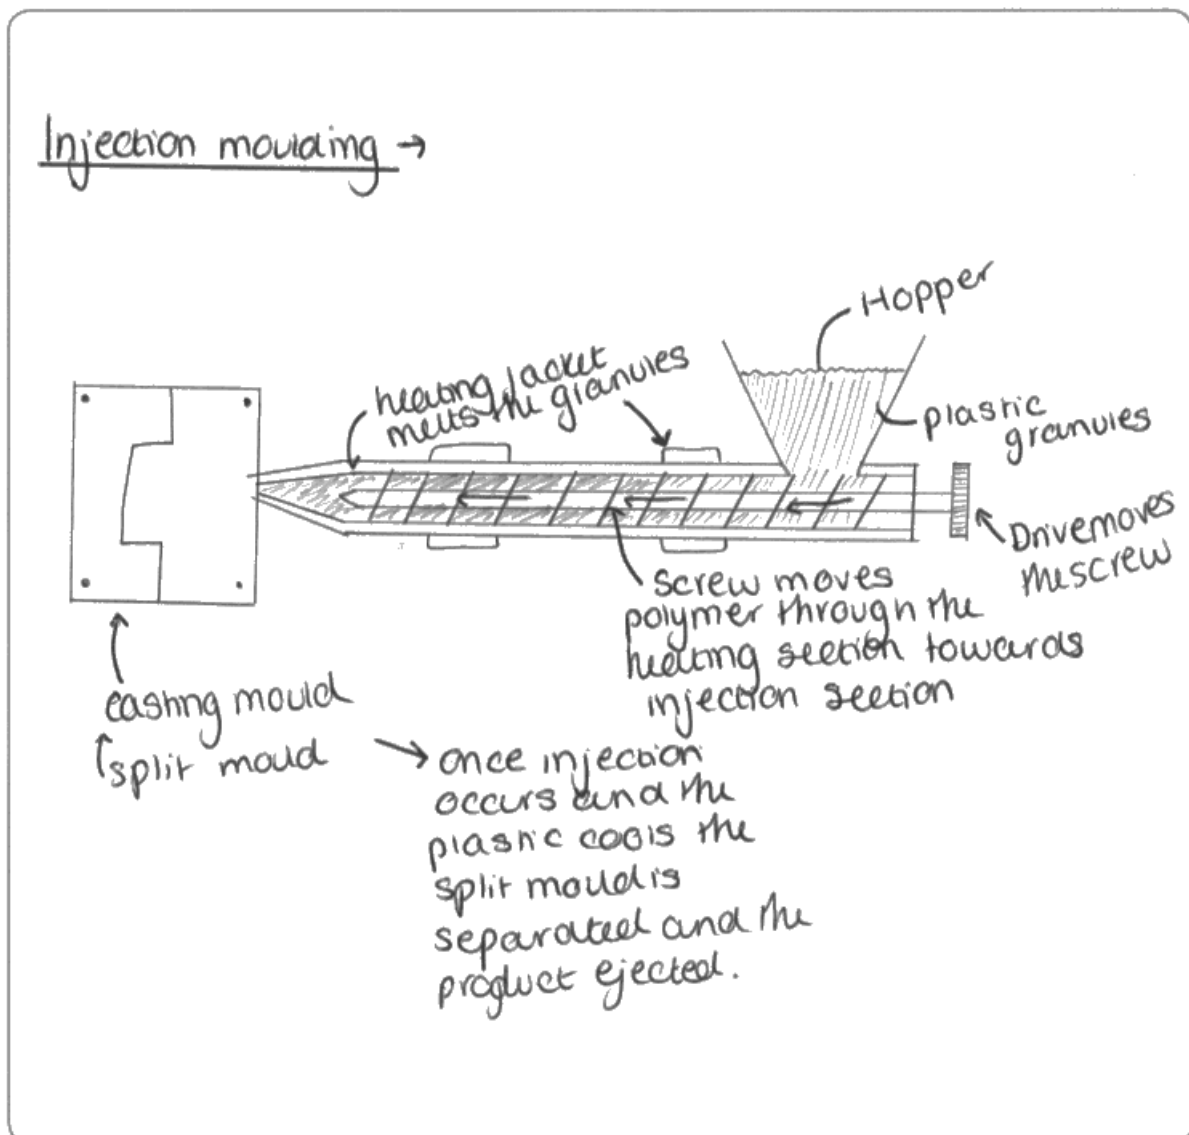 Injection moulding →
Hopper
heating jacket
melts the granules
plastic
granules
Drive moves
the screw
screw moves
polymer through the
heating section towards
injection section
casting mould
split mould
once injection
occurs and the
plastic cools the
split mould is
separated and the
product ejected.